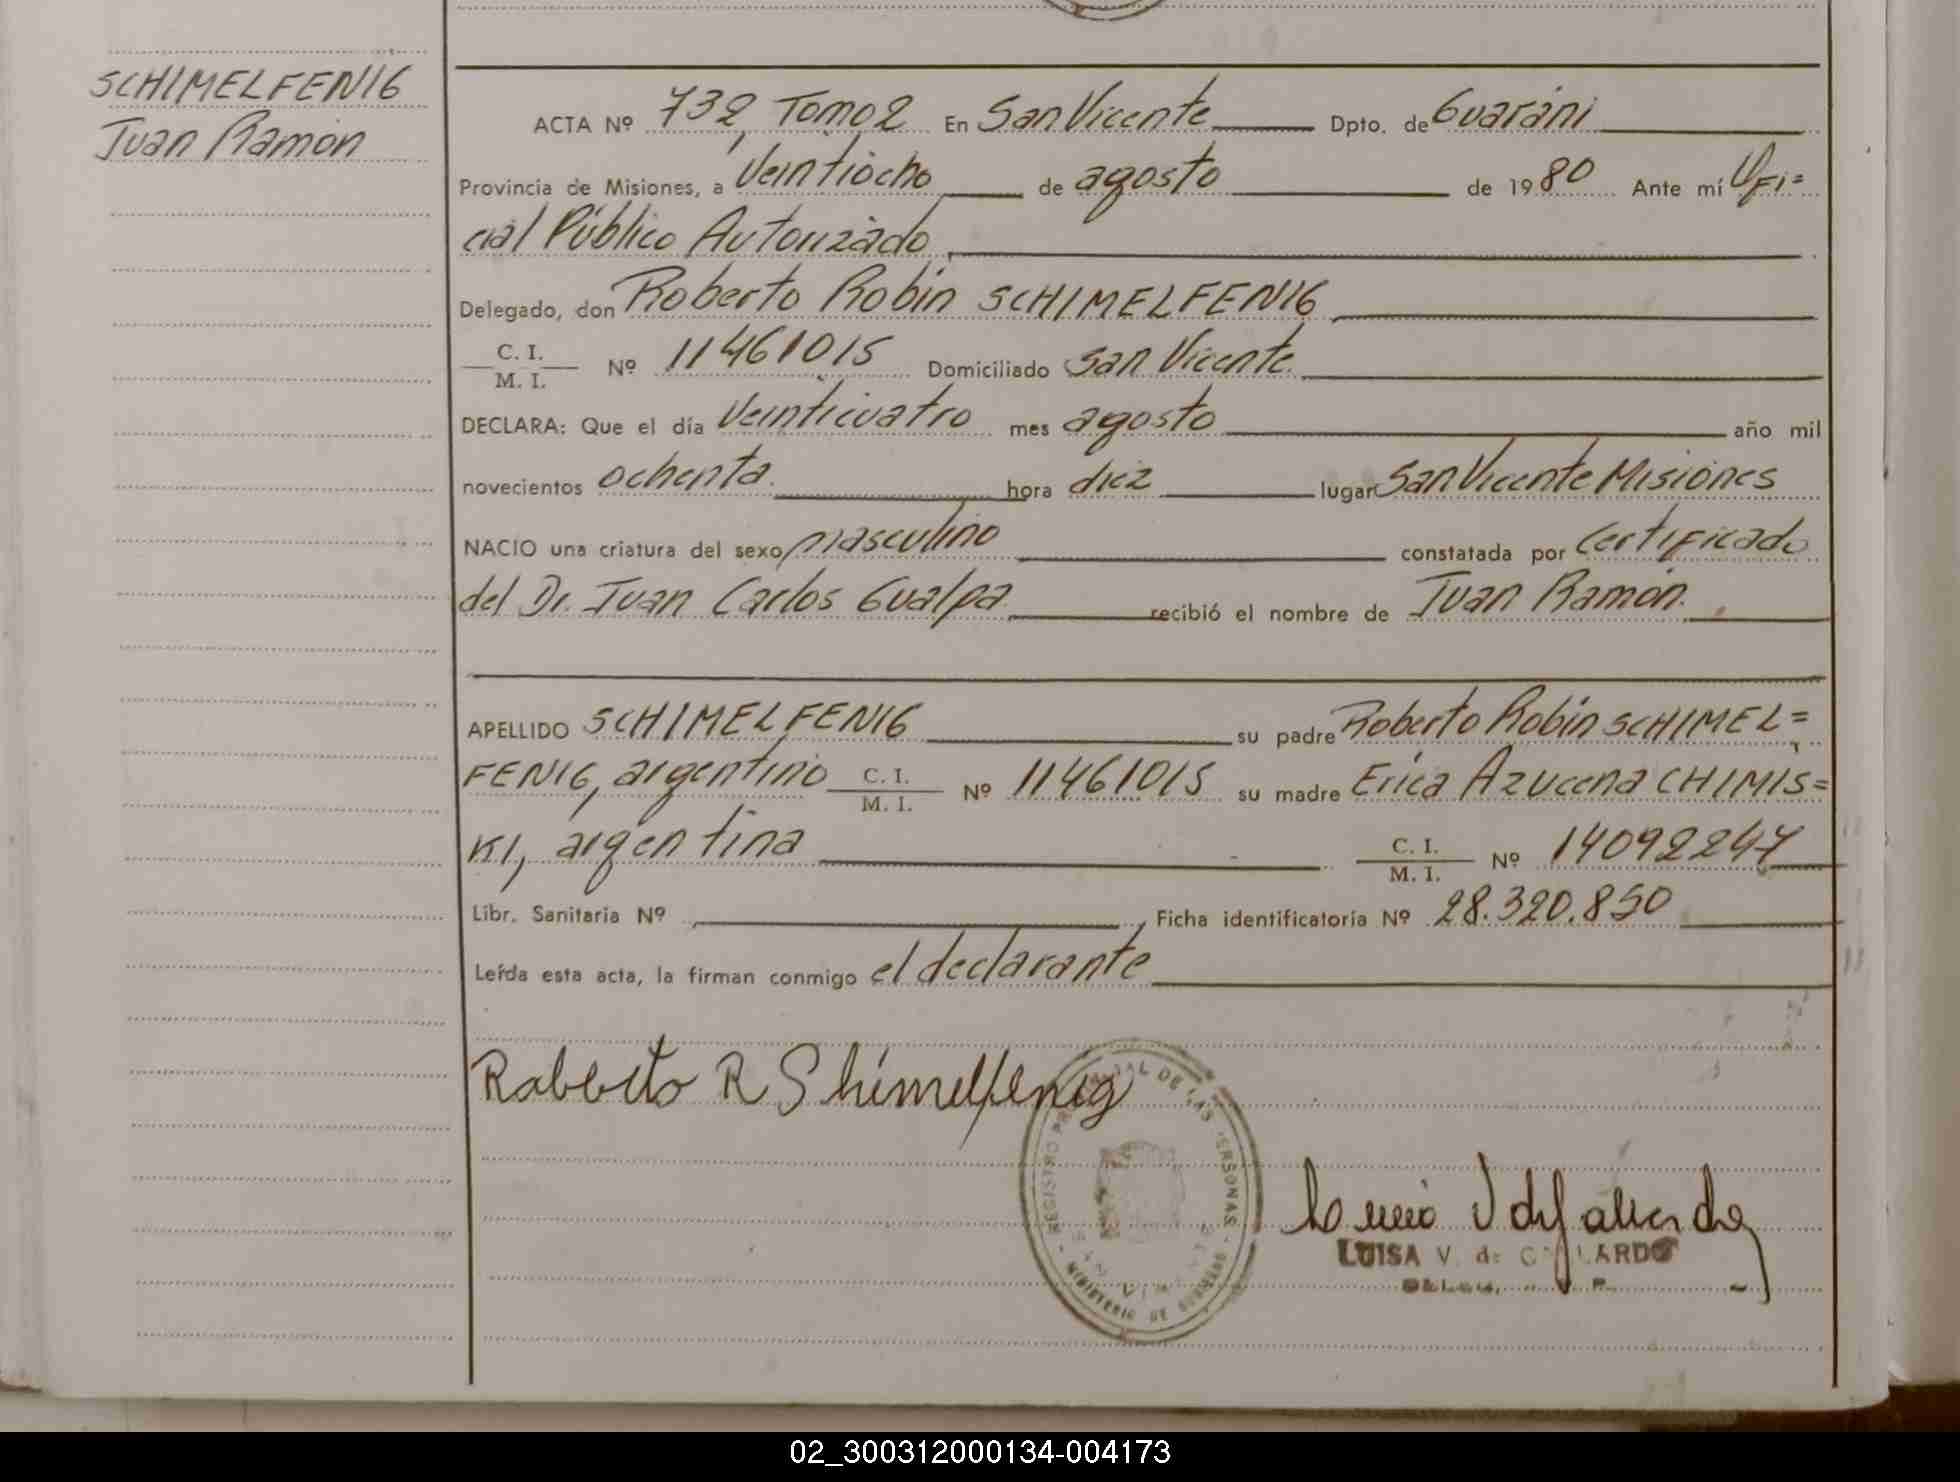 SCHIMELFENIG
Juan Ramón
ACTA Nº 732, Tomo 2 En San Vicente Dpto. de Guaraní
Provincia de Misiones, a Veintiocho de agosto de 1980 Ante mí Ofi=
cial Público Autorizado,
Delegado, don Roberto Robin SCHIMELFENIG
C. I.
M. I. Nº 11461015 Domiciliado San Vicente.
DECLARA: Que el día Veinticuatro mes agosto año mil
novecientos ochenta. hora diez lugar San Vicente Misiones
NACIO una criatura del sexo masculino constatada por Certificado
del Dr. Juan Carlos Gualpa. recibió el nombre de Juan Ramón.
APELLIDO SCHIMELFENIG su padre Roberto Robin SCHIMEL=
FENIG, argentino C. I.
M. I. Nº 11461015 su madre Erica Azucena CHIMIS=
KI, argentina C. I.
M. I. Nº 14092247
Libr. Sanitaria Nº , Ficha identificatoria Nº 28.320.850
Leída esta acta, la firman conmigo el declarante
Roberto R Shimelfenig
REGISTRO PROVINCIAL DE LAS PERSONAS - MINISTERIO DE GOBIERNO
LUISA V. de GALLARDO
02_300312000134-004173